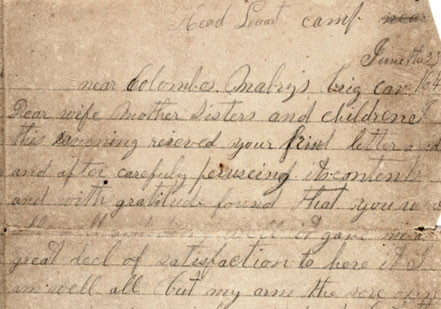 Head camp near
June the 23
near Colombos Mabrys brig cav 164
Dear wife Mother Sisters and childrene
this evening receved your frind letter and
and after carefuly peruseing it content
and with gratitude found that you
it gave me a
great deel of satisfaction to here it I
am well all but my arm the sore